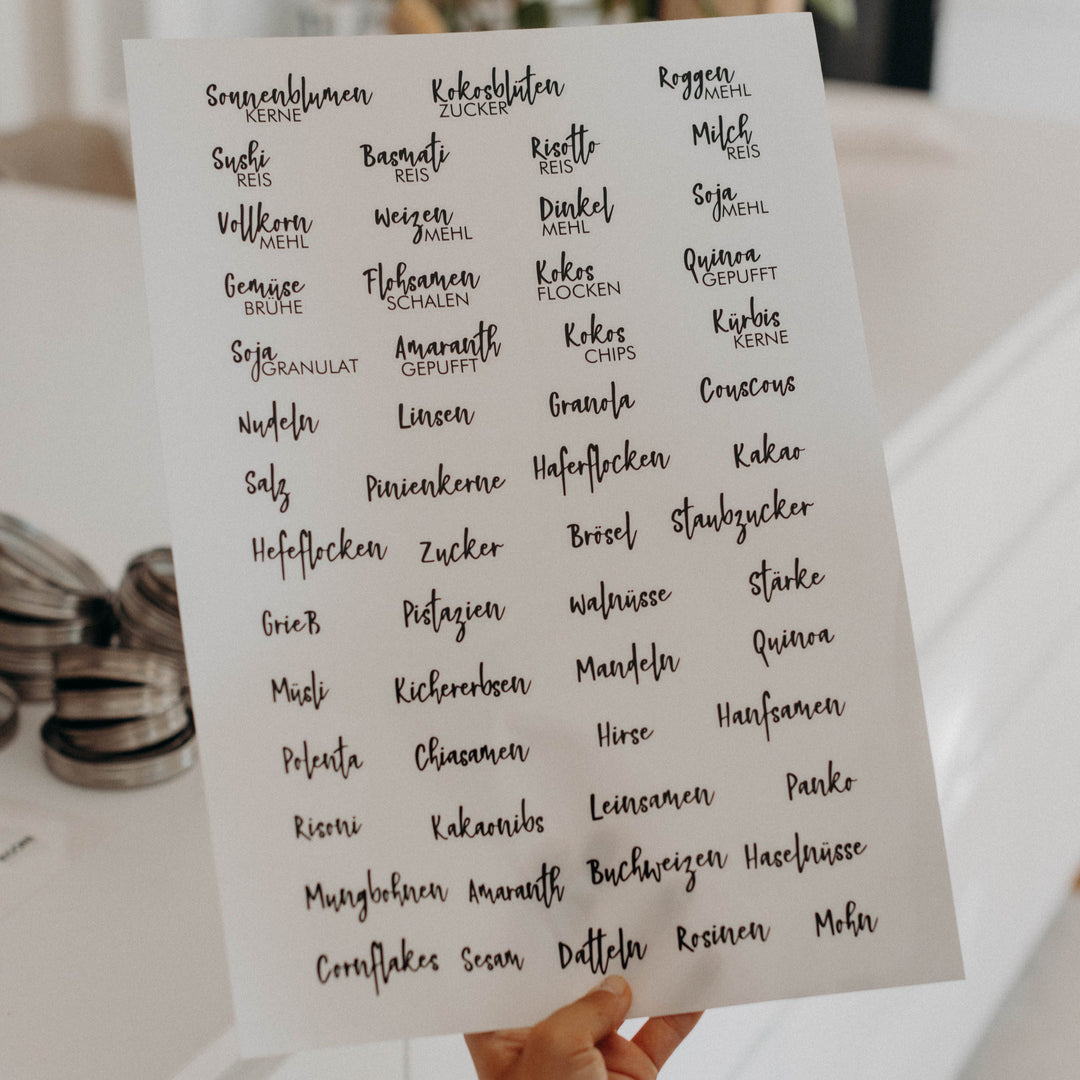 Sonnenblumen Kokosblüten Roggen
KERNE ZUCKER MEHL
Sushi Basmati Risotto Milch
REIS REIS REIS REIS
Vollkorn Weizen Dinkel Soja
MEHL MEHL MEHL MEHL
Gemüse Flohsamen Kokos Quinoa
BRÜHE SCHALEN FLOCKEN GEPUFFT
Soja Amaranth Kokos Kürbis
GRANULAT GEPUFFT CHIPS KERNE
Nudeln Linsen Granola Couscous
Salz Pinienkerne Haferflocken Kakao
Hefeflocken Zucker Brösel Staubzucker
Grieß Pistazien Walnüsse Stärke
Müsli Kichererbsen Mandeln Quinoa
Polenta Chiasamen Hirse Hanfsamen
Risoni Kakaonibs Leinsamen Panko
Mungbohnen Amaranth Buchweizen Haselnüsse
Cornflakes Sesam Datteln Rosinen Mohn